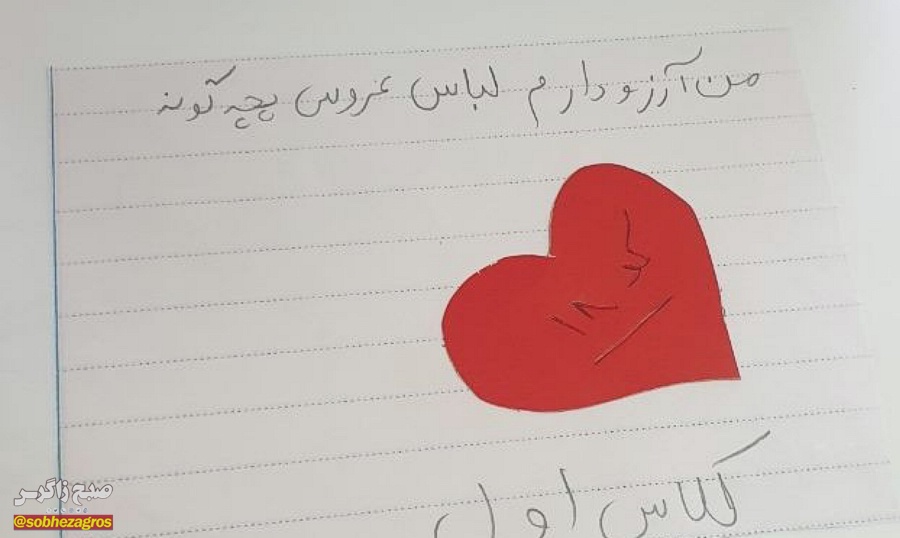 من آرزو دارم لباس عروس بچه گونه
کلاس اول
صبح زاگرس
@sobhezagros